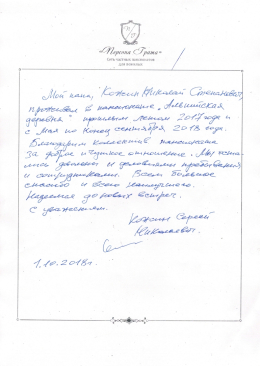 «Первая Грата»
сеть частных пансионатов
для пожилых
Мой папа, Кожин Николай Степанович,
проживал в пансионате „Альпийская
деревня" прошлым летом 2017 года и
с мая по конец сентября 2018 года.
Благодарим коллектив пансионата
за доброе и чуткое отношение. Мы оста-
лись довольны условиями проживания
и сотрудниками. Всем большое
спасибо и всего наилучшего.
Надеемся до новых встреч.
С уважением.
Кожин Сергей
Николаевич.
1.10.2018г.